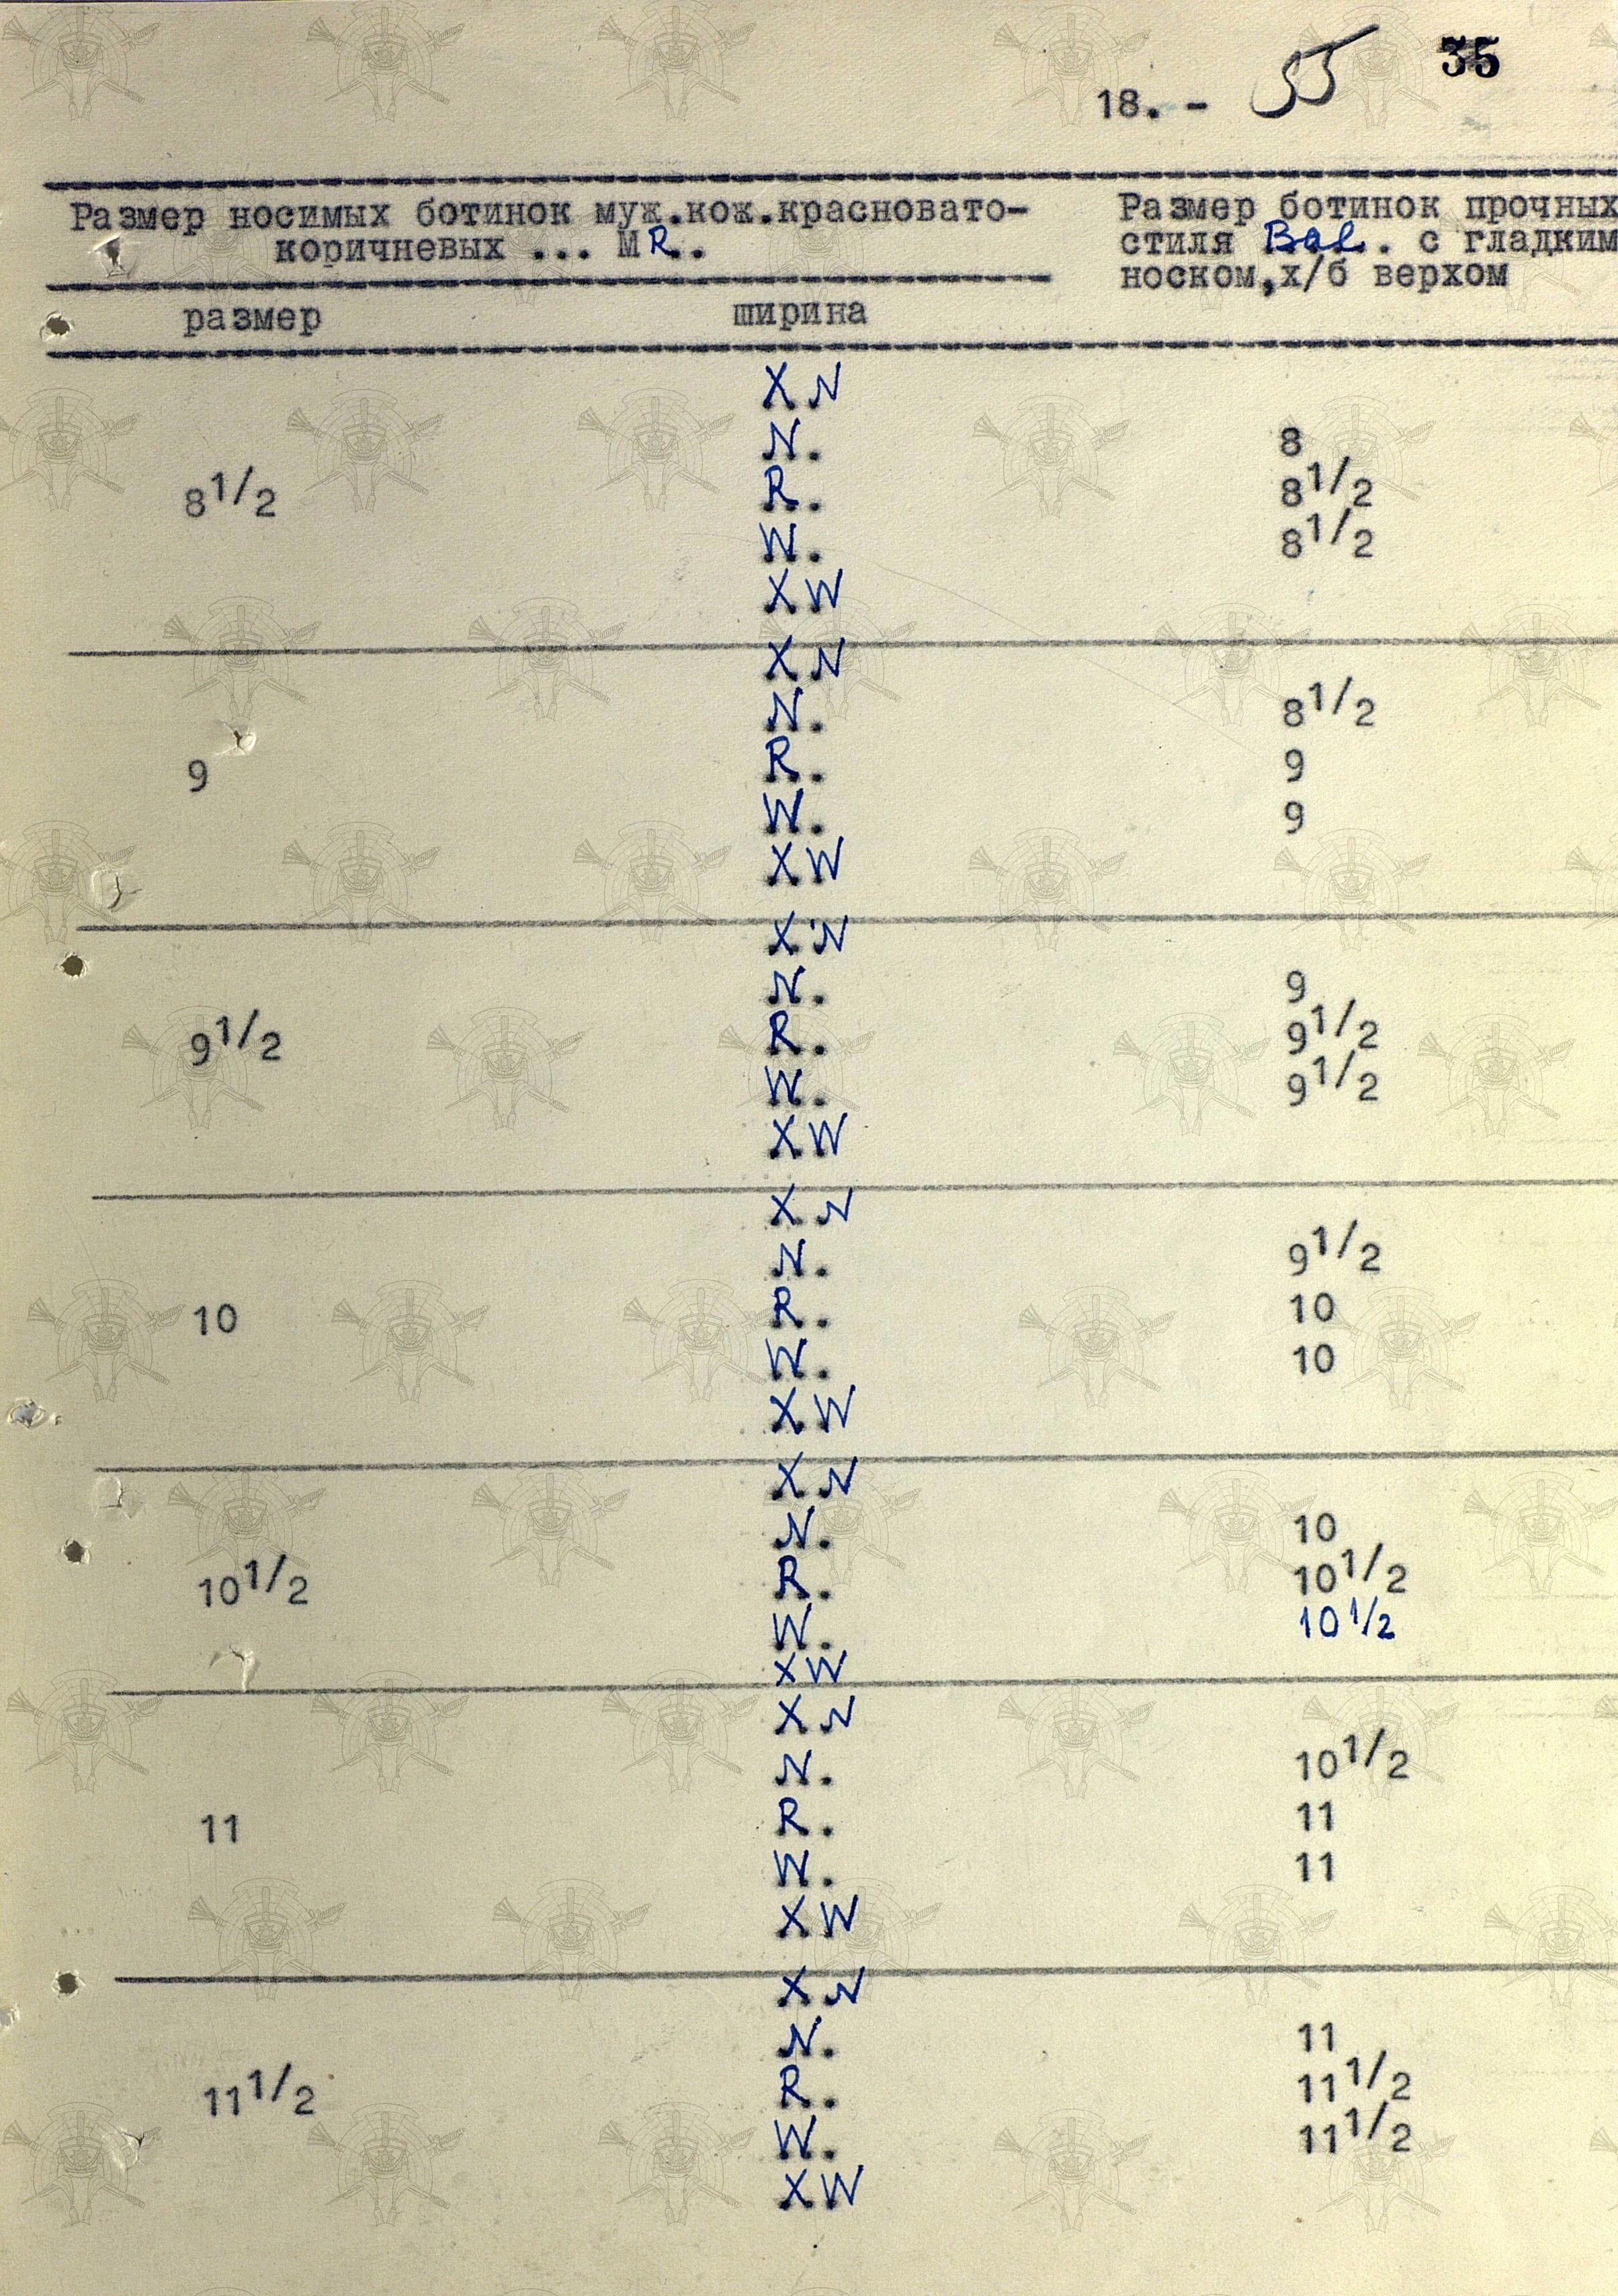 35
18. - 55
Размер носимых ботинок муж.кож.красновато-
коричневых ... МR..
Размер ботинок прочных
стиля Bal. с гладким
носком,х/б верхом
размер ширина
XN
N. 8
8 1/2 R. 8 1/2
W. 8 1/2
XW
XN
N. 8 1/2
9 R. 9
W. 9
XW
XN
N. 9
9 1/2 R. 9 1/2
W. 9 1/2
XW
XN
N. 9 1/2
10 R. 10
W. 10
XW
XN
N. 10
10 1/2 R. 10 1/2
W. 10 1/2
XW
XN
N. 10 1/2
11 R. 11
W. 11
XW
XN
N. 11
11 1/2 R. 11 1/2
W. 11 1/2
XW